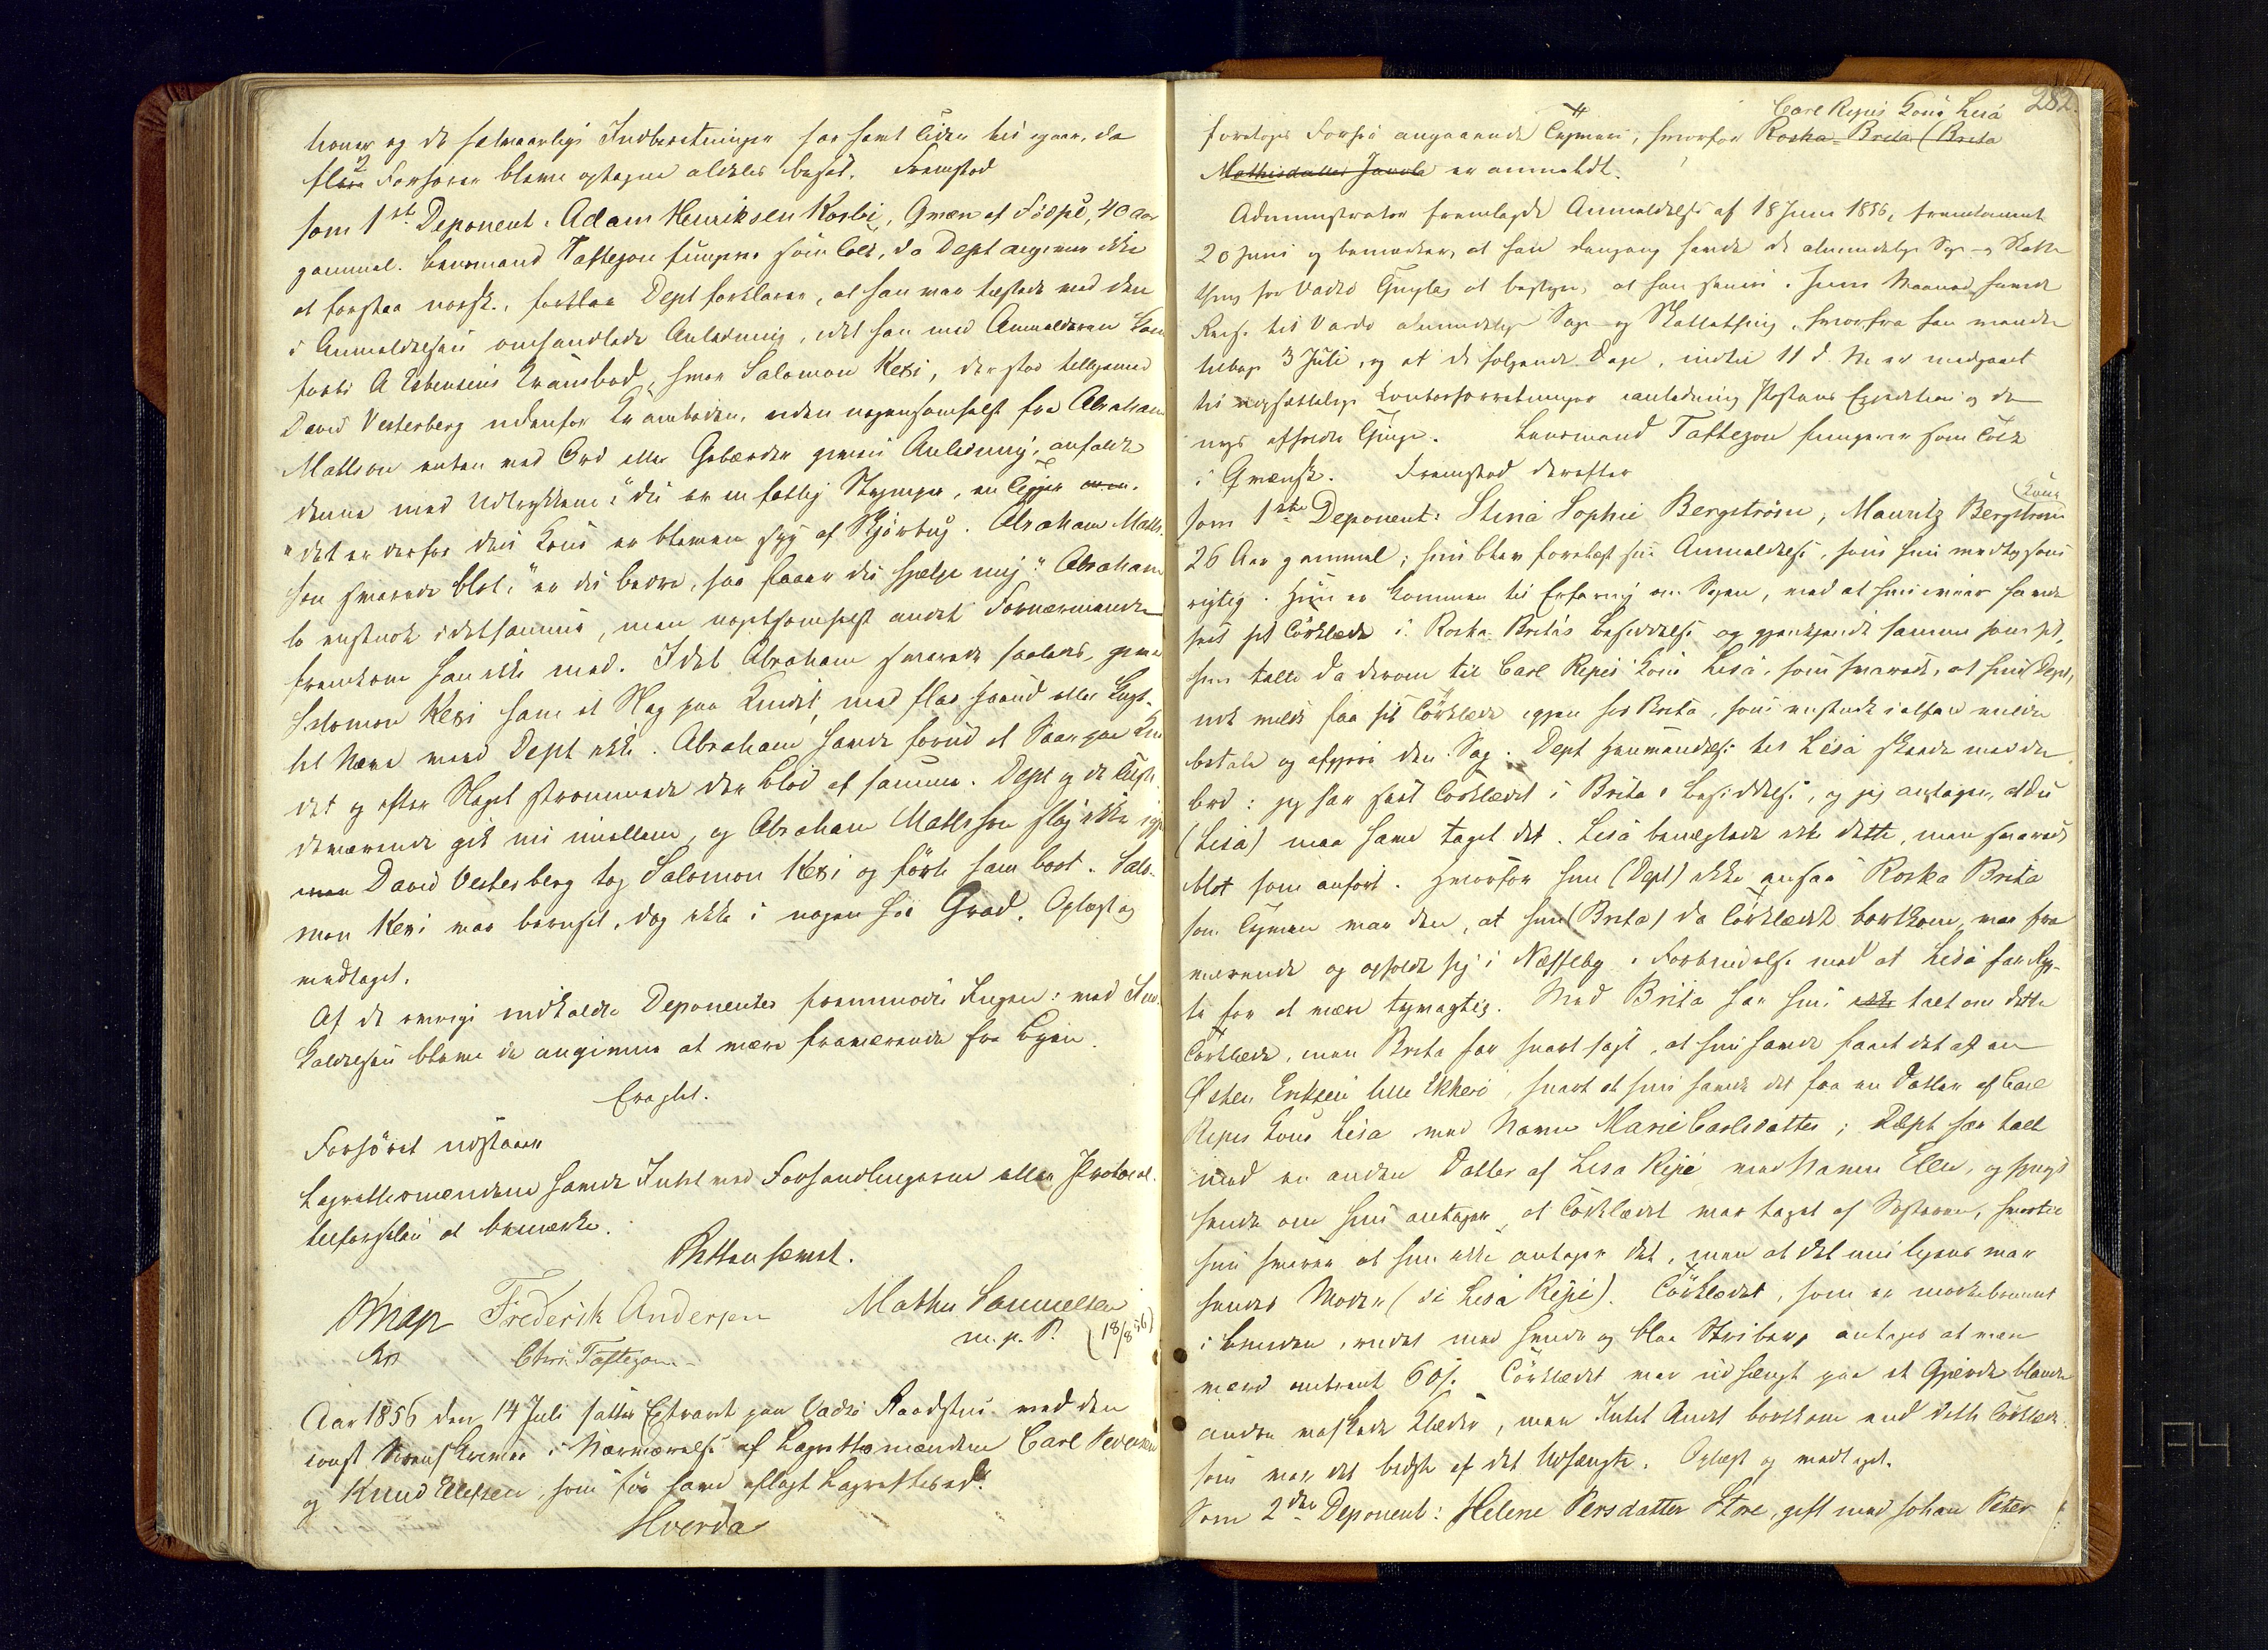 tioner og de sædvanlige Indberetninger har havt Tiden til igaar, da
flere Forhører bleve optagne aldeles besat. Fremstod
som 1ste Deponent. Adam Henriksen Koski, Qvæn af Födsel, 40 Aar
gammel. Lensmand Taftezon fungerer som Tolk, da Dept angiver ikke
at forstaa norsk. Dept forklarer, at han var tilstede ved den
i Anmeldelsen omhandlede Anledning, idet han med Anmelderen kom
forbi A Esbensens Krambod, hvor Salomon Kexi, der stod tilligemed
David Vesterberg udenfor Kramboden, uden nogensomhelst fra Abraham
Mattson enten ved Ord eller Gebærder given Anledning, anfaldt
denne med Udtrykkene: "du er en fattig Stymper, en Tigger
"det er derfor din Kone er bleven syg af Skjörbug. Abraham Matts-
son svarede blot: "er du bedre, saa faaer du hjelpe mig". Abraham
lo rigtignok idetsamme, men nogetsomhelst andet Fornærmende
fremkom han ikke med. Idet Abraham svarede saaledes, gav
Salomon Kexi ham et Slag paa Kindet, med flad Haand eller knyt-
tet Næve veed Dept ikke. Abraham havde forud et Saar paa Kin-
det og efter Slaget strömmede der Blod af samme. Dept og de Tilste-
deværende gik nu imellem, og Abraham Mattsson slog ikke igjen
men David Vesterberg tog Salomon Kexi og förte ham bort. Salo-
mon Kexi var beruset, dog ikke i nogen höi Grad. Oplæst og
vedtaget.
Af de övrige indkaldte Deponenter fremmödte Ingen: ved Ind-
kaldelsen bleve de angivne at være fraværende fra Byen.
Eragtet.
Forhöret udstaaer
Lagrettesmændene havde Intet ved Forhandlingerne eller Protocol-
tilförselen at bemærke.
Retten hævet.
Knap Frederik Andersen Mathis Samuelsen
m. p. P. (18/8 56)
Chr. Taftezon
Aar 1856 den 14 Juli sattes Extraret paa Vadsö Raadstue ved den
const Sorenskriver i Nærværelse af Lagrettesmændene Carl Pedersen
og Knud Ellefsen, som för have aflagt Lagrettesed.
Hvorda
282.
Carl Repis Kone Lisa
foretoges Forhör angaaende Tyveri, hvorfor Roska-Brita (Brita
Mathisdatter Javola er anmeldt.
Administrator fremlagde Anmeldelse af 18 Juni 1856, fremkommet
20 Juni og bemærker, at han dengang havde de almindelige Sage- og Skatte
thing for Vadsö Thinglag at bestyre, at han senere i Juni Maaned havde
Reise til Vardö almindelige Sage- og Skattething, hvorfra han vendte
tilbage 3 Juli, og at de fölgende Dage, indtil 11 d. M. er medgaaet
til uopsættelige Contorforretninger i anledning Postens Expedition og de
nys afholdte Thinge. Lensmand Taftezon fungerer som Tolk
i Qvænsk. Fremstod derefter
Kone
som 1ste Deponent: Stina Sophie Bergström, Mauritz Bergströms
26 Aar gammel; hun blev forelæst sin Anmeldelse, som hun vedtog som
rigtig. Hun er kommen til Erfaring om Sagen, ved at hun havde
seet sit Törklæde i Roska-Britas Besiddelse og gjenkjendt samme som sit,
hun talte da derom til Carl Repis Kone Lisa, som svarede, at hun (Dept)
nok vilde faa sit Törklæde igjen hos Brita, som i alfald vilde
betale og afgjöre den Sag. Dept Henvendelse til Lisa skede med de
Ord: jeg har seet Törklædet i Britas Besiddelse, og jeg antager, at du
(Lisa) maa have taget det. Lisa benægtede ikke dette, men svarede
blot som anfört. Hvorfor hun (Dept) ikke ansaa Roska Brita
som Tyven var den, at hun (Brita) da Törklædet bortkom, var fra-
værende og opholdt sig i Næsseby, i Forbindelse med at Lisa har Ryg-
te for at være tyvagtig. Med Brita har hun ikke talt om dette
Törklæde, men Brita har snart sagt, at hun havde faaet det af en
Östen Eriksen lille Ekkerö, snart at hun havde det fra en Datter af Carl
Repis Kone Lisa ved Navn Marie Carlsdatter; Dept har talt
med en anden Datter af Lisa Repi ved Navn Ellen, og spurgt
hende om hun antager, at Törklædet var taget af Sösteren, hvortil
hun svarer at hun ikke antager det, men at det muligens var
hendes Moder (ɔ: Lisa Repi). Törklædet, som er mörkebrunt
i Bunden, rudet med hvide og blaa Striber, antages at være
værd omtrent 60 s. Törklædet var udhængt paa et Gjærde blandt
andre vaskede Klæder, men Intet Andet bortkom end dette Törklæde
som var det bedste af det Udhængte. Oplæst og vedtaget.
Som 2den Deponent: Helene Persdatter Store, gift med Johan Peter